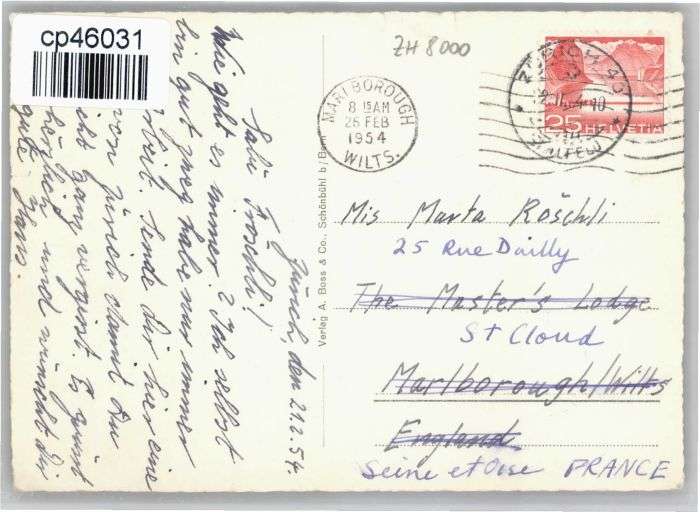 cp46031
ZH 8000
ZÜRICH 40
25 HELVETIA
MARLBOROUGH
8 15 AM
26 FEB
1954
WILTS.
Zürich, den 21.2.54.
Salü Fröschli!
Wie geht es immer? Ich selbst
bin gut zweg habe nur immer
Arbeit. Sende dir hier eine
von Zürich damit du
nicht ganz vergisst. Es grüsst
herzlich und wünscht dir
gute Hans.
Verlag A. Boss & Co., Schönbühl b / Bern
Mis Marta Röschli
25 Rue Dailly
The Master's Lodge
St Cloud
Marlborough/Wilts
England
Seine et Oise FRANCE